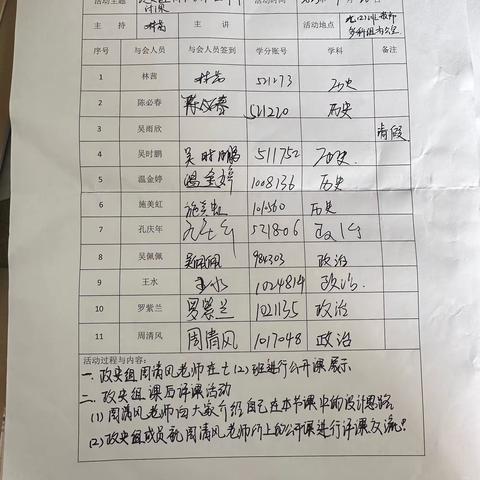 活动主题 活动时间
主 持 林茜 主 讲 活动地点
序号 与会人员 与会人员签到 学分账号 学科 备注
1 林茜 林茜 521273 历史
2 陈必春 陈必春 521220 历史
3 吴雨欣 请假
4 吴时鹏 吴时鹏 511752 历史
5 温金婷 温金婷 1008136 历史
6 施美虹 施美虹 1010560 历史
7 孔庆年 521806 政治
8 吴佩佩 吴佩佩 984303 政治
9 王水 王水 1024814 政治
10 罗紫兰 罗紫兰 1021135 政治
11 周清风 周清风 1017048 政治
活动过程与内容:
一. 政史组周清风老师在七(2)班进行公开课展示
二. 政史组课后评课活动
(1) 周清风老师向大家介绍自己在本节课中的设计思路.
(2) 政史组成员就周清风老师所上的公开课进行评课交流.